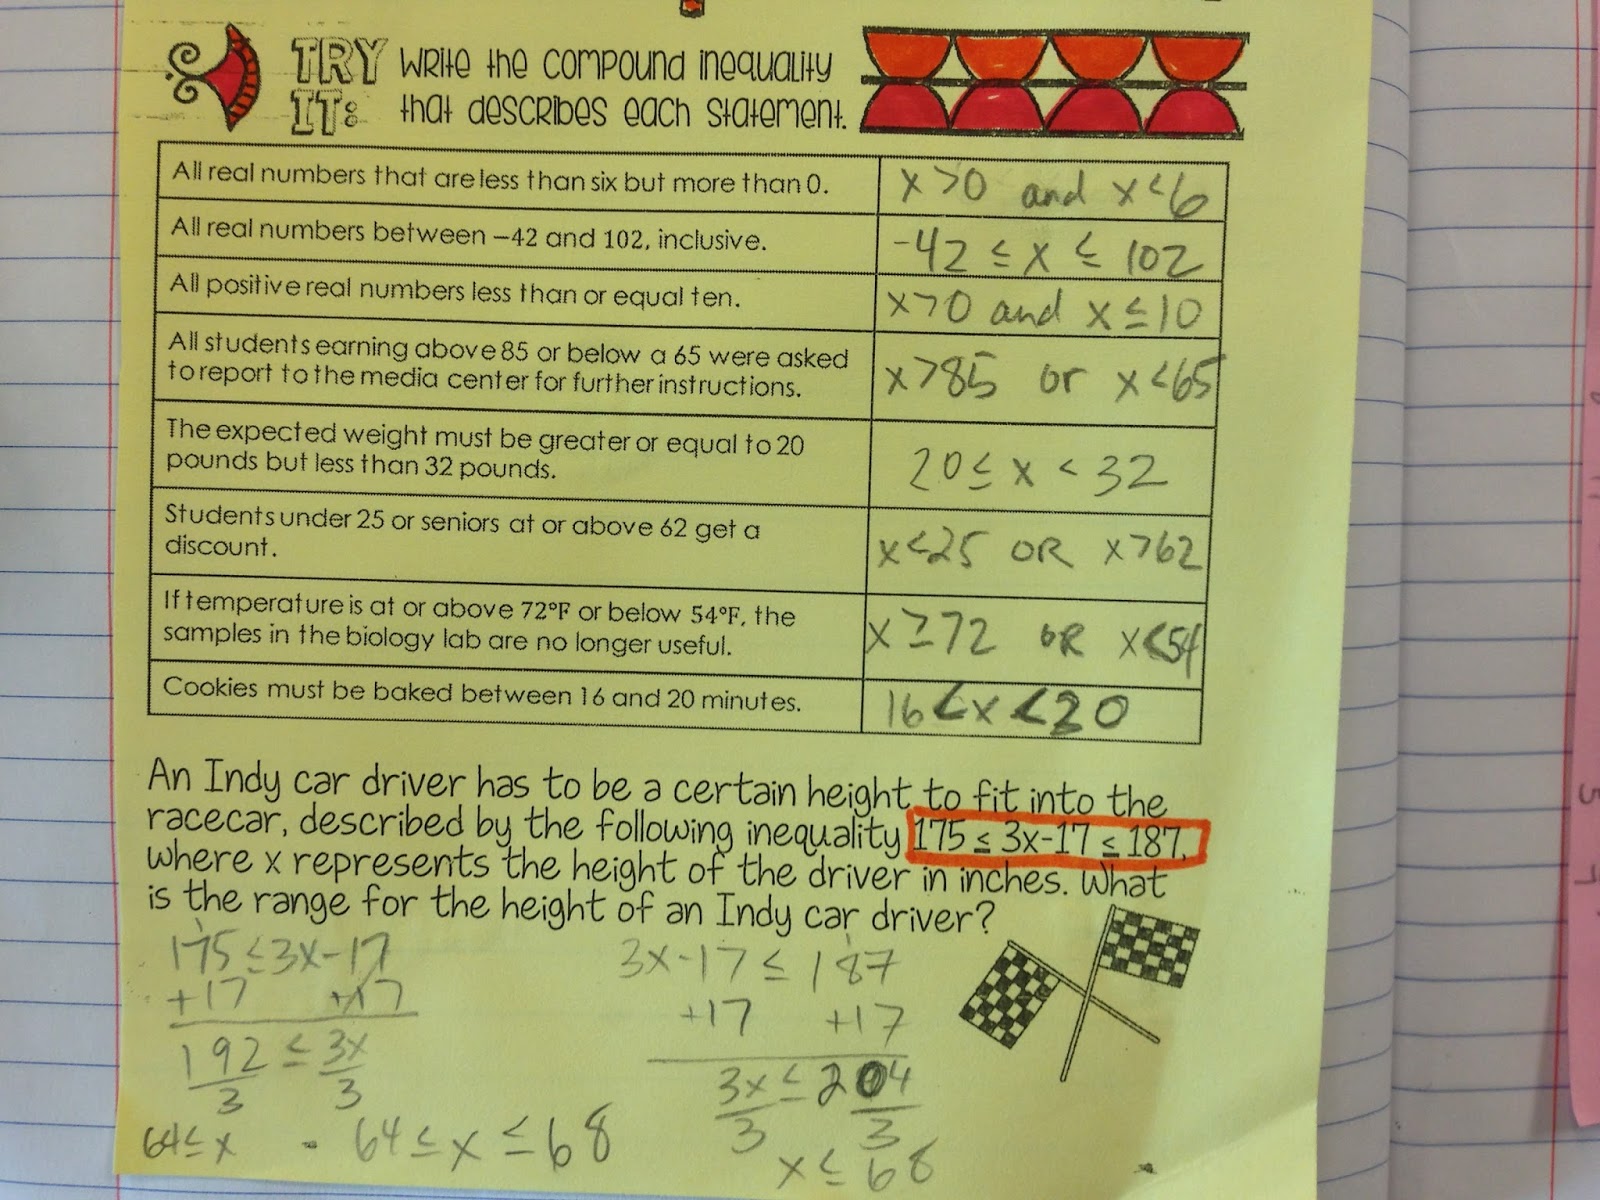 TRY IT: Write the compound inequality
that describes each statement.
All real numbers that are less than six but more than 0.
x>0 and x<6
All real numbers between −42 and 102, inclusive.
-42 ≤ x ≤ 102
All positive real numbers less than or equal ten.
x>0 and x≤10
All students earning above 85 or below a 65 were asked
to report to the media center for further instructions.
x>85 or x<65
The expected weight must be greater or equal to 20
pounds but less than 32 pounds.
20≤ x < 32
Students under 25 or seniors at or above 62 get a
discount.
x<25 OR x>62
If temperature is at or above 72°F or below 54°F, the
samples in the biology lab are no longer useful.
x≥72 OR x<54
Cookies must be baked between 16 and 20 minutes.
16<x<20
An Indy car driver has to be a certain height to fit into the
racecar, described by the following inequality 175 ≤ 3x-17 ≤ 187,
where x represents the height of the driver in inches. What
is the range for the height of an Indy car driver?
175≤3x-17
+17 +17
192 ≤ 3x
3 3
64≤x
3x-17 ≤ 187
+17 +17
3x ≤ 204
3 3
x ≤ 68
64≤x≤68